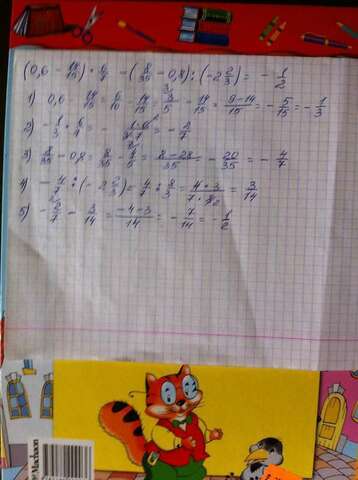 (0,6 - 14/15) * 6/7 - (8/35 - 0,8) : (-2 2/3) = - 1/2
1) 0,6 - 14/15 = 6/10 - 14/15 = 3/5 - 14/15 = 9-14/15 = - 5/15 = - 1/3
2) - 1/3 * 6/7 = - 1*6/3*7 = - 2/7
3) 8/35 - 0,8 = 8/35 - 4/5 = 8-28/35 = - 20/35 = - 4/7
4) - 4/7 : (-2 2/3) = 4/7 * 3/8 = 4*3/7*8 = 3/14
5) - 2/7 - 3/14 = -4-3/14 = - 7/14 = - 1/2
Machaon